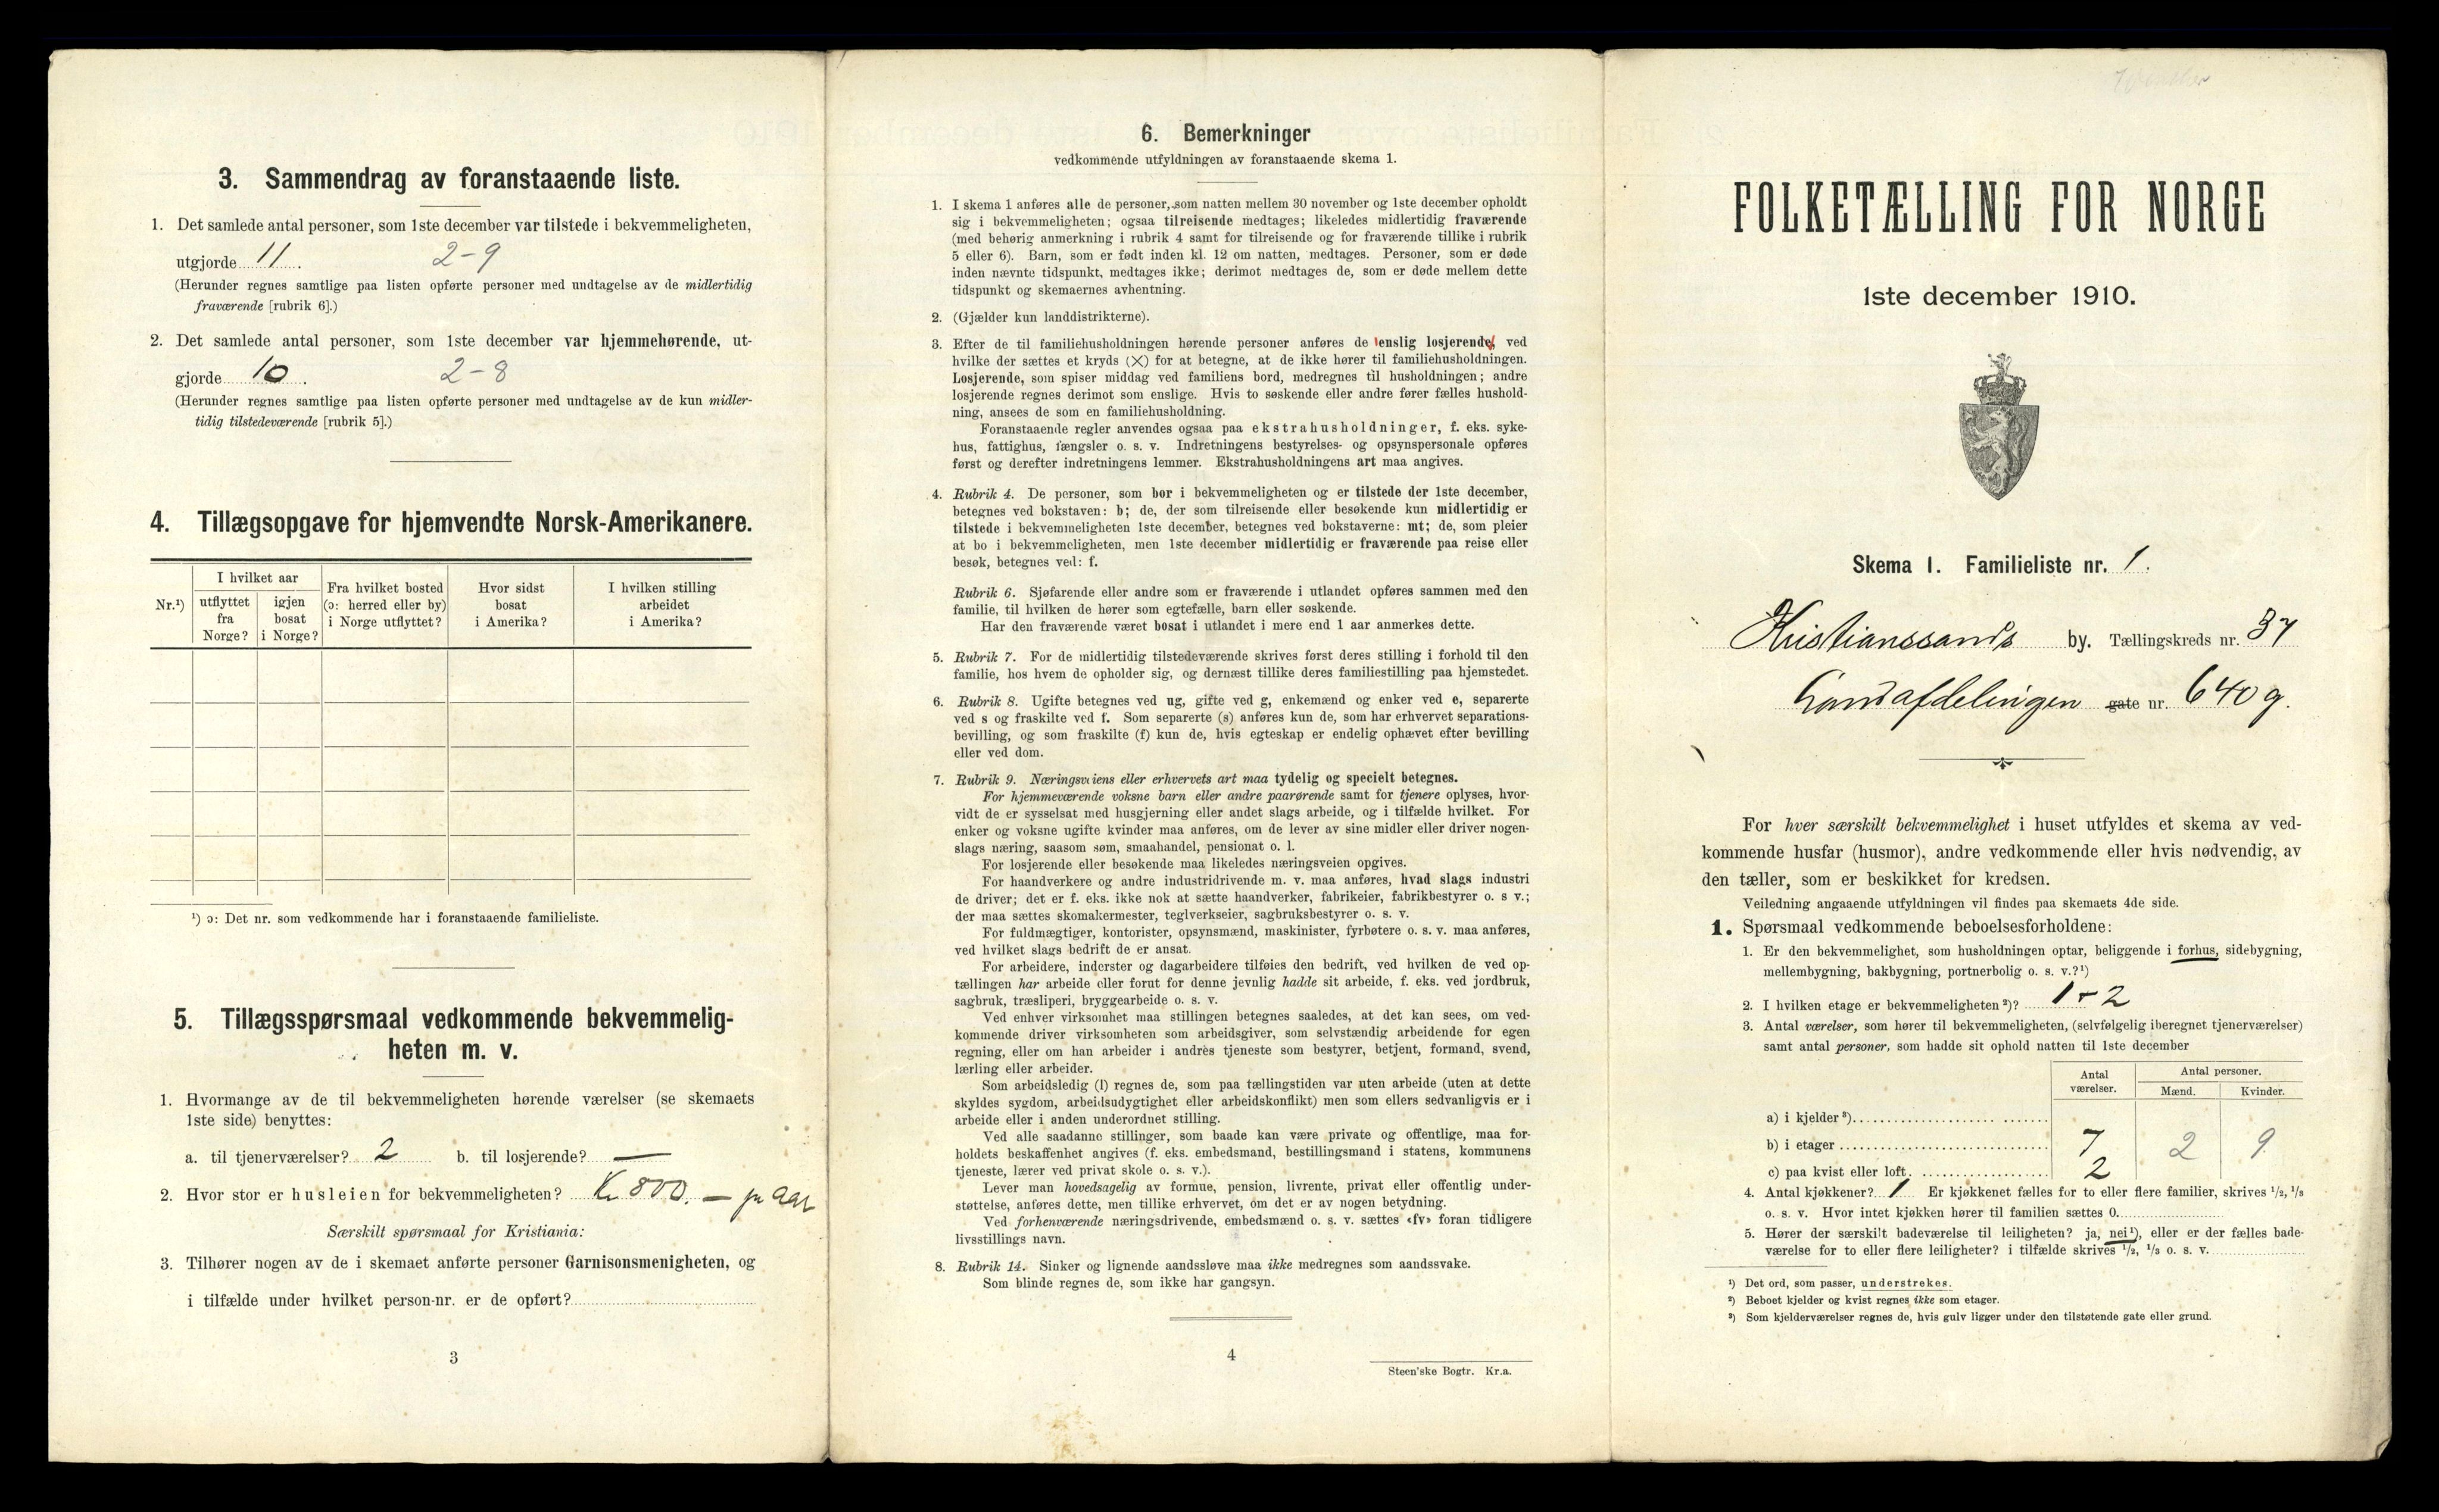 3. Sammendrag av foranstaaende liste.
1. Det samlede antal personer, som 1ste december var tilstede i bekvemmeligheten,
utgjorde 11. 2-9
(Herunder regnes samtlige paa listen opførte personer med undtagelse av de midlertidig
fraværende [rubrik 6].)
2. Det samlede antal personer, som 1ste december var hjemmehørende, ut-
gjorde 10. 2-8
(Herunder regnes samtlige paa listen opførte personer med undtagelse av de kun midler-
tidig tilstedeværende [rubrik 5].)
4. Tillægsopgave for hjemvendte Norsk-Amerikanere.
Nr.¹)
I hvilket aar
utflyttet fra Norge?
igjen bosat i Norge?
Fra hvilket bosted (ɔ: herred eller by) i Norge utflyttet?
Hvor sidst bosat i Amerika?
I hvilken stilling arbeidet i Amerika?
¹) ɔ: Det nr. som vedkommende har i foranstaaende familieliste.
5. Tillægsspørsmaal vedkommende bekvemmelig-
heten m. v.
1. Hvormange av de til bekvemmeligheten hørende værelser (se skemaets
1ste side) benyttes:
a. til tjenerværelser? 2 b. til losjerende? —
2. Hvor stor er husleien for bekvemmeligheten? Kr 800. — pr aar
Særskilt spørsmaal for Kristiania:
3. Tilhører nogen av de i skemaet anførte personer Garnisonsmenigheten, og
i tilfælde under hvilket person-nr. er de opført?
3
6. Bemerkninger
vedkommende utfyldningen av foranstaaende skema 1.
1. I skema 1 anføres alle de personer, som natten mellem 30 november og 1ste december opholdt
sig i bekvemmeligheten; ogsaa tilreisende medtages; likeledes midlertidig fraværende
(med behørig anmerkning i rubrik 4 samt for tilreisende og for fraværende tillike i rubrik
5 eller 6). Barn, som er født inden kl. 12 om natten, medtages. Personer, som er døde
inden nævnte tidspunkt, medtages ikke; derimot medtages de, som er døde mellem dette
tidspunkt og skemaernes avhentning.
2. (Gjælder kun landdistrikterne).
3. Efter de til familiehusholdningen hørende personer anføres de enslig losjerende, ved
hvilke der sættes et kryds (×) for at betegne, at de ikke hører til familiehusholdningen.
Losjerende, som spiser middag ved familiens bord, medregnes til husholdningen; andre
losjerende regnes derimot som enslige. Hvis to søskende eller andre fører fælles hushold-
ning, ansees de som en familiehusholdning.
Foranstaaende regler anvendes ogsaa paa ekstrahusholdninger, f. eks. syke-
hus, fattighus, fængsler o. s. v. Indretningens bestyrelses- og opsynspersonale opføres
først og derefter indretningens lemmer. Ekstrahusholdningens art maa angives.
4. Rubrik 4. De personer, som bor i bekvemmeligheten og er tilstede der 1ste december,
betegnes ved bokstaven: b; de, der som tilreisende eller besøkende kun midlertidig er
tilstede i bekvemmeligheten 1ste december, betegnes ved bokstaverne: mt; de, som pleier
at bo i bekvemmeligheten, men 1ste december midlertidig er fraværende paa reise eller
besøk, betegnes ved: f.
Rubrik 6. Sjøfarende eller andre som er fraværende i utlandet opføres sammen med den
familie, til hvilken de hører som egtefælle, barn eller søskende.
Har den fraværende været bosat i utlandet i mere end 1 aar anmerkes dette.
5. Rubrik 7. For de midlertidig tilstedeværende skrives først deres stilling i forhold til den
familie, hos hvem de opholder sig, og dernæst tillike deres familiestilling paa hjemstedet.
6. Rubrik 8. Ugifte betegnes ved ug, gifte ved g, enkemænd og enker ved e, separerte
ved s og fraskilte ved f. Som separerte (s) anføres kun de, som har erhvervet separations-
bevilling, og som fraskilte (f) kun de, hvis egteskap er endelig ophævet efter bevilling
eller ved dom.
7. Rubrik 9. Næringsveiens eller erhvervets art maa tydelig og specielt betegnes.
For hjemmeværende voksne barn eller andre paarørende samt for tjenere oplyses, hvor-
vidt de er sysselsat med husgjerning eller andet slags arbeide, og i tilfælde hvilket. For
enker og voksne ugifte kvinder maa anføres, om de lever av sine midler eller driver nogen-
slags næring, saasom søm, smaahandel, pensionat o. l.
For losjerende eller besøkende maa likeledes næringsveien opgives.
For haandverkere og andre industridrivende m. v. maa anføres, hvad slags industri
de driver; det er f. eks. ikke nok at sætte haandverker, fabrikeier, fabrikbestyrer o. s v.;
der maa sættes skomakermester, teglverkseier, sagbruksbestyrer o. s. v.
For fuldmægtiger, kontorister, opsynsmænd, maskinister, fyrbøtere o. s. v. maa anføres,
ved hvilket slags bedrift de er ansat.
For arbeidere, inderster og dagarbeidere tilføies den bedrift, ved hvilken de ved op-
tællingen har arbeide eller forut for denne jevnlig hadde sit arbeide, f. eks. ved jordbruk,
sagbruk, træsliperi, bryggearbeide o. s. v.
Ved enhver virksomhet maa stillingen betegnes saaledes, at det kan sees, om ved-
kommende driver virksomheten som arbeidsgiver, som selvstændig arbeidende for egen
regning, eller om han arbeider i andres tjeneste som bestyrer, betjent, formand, svend,
lærling eller arbeider.
Som arbeidsledig (l) regnes de, som paa tællingstiden var uten arbeide (uten at dette
skyldes sygdom, arbeidsudygtighet eller arbeidskonflikt) men som ellers sedvanligvis er i
arbeide eller i anden underordnet stilling.
Ved alle saadanne stillinger, som baade kan være private og offentlige, maa for-
holdets beskaffenhet angives (f. eks. embedsmand, bestillingsmand i statens, kommunens
tjeneste, lærer ved privat skole o. s. v.).
Lever man hovedsagelig av formue, pension, livrente, privat eller offentlig under-
støttelse, anføres dette, men tillike erhvervet, om det er av nogen betydning.
Ved forhenværende næringsdrivende, embedsmænd o. s. v. sættes «fv» foran tidligere
livsstillings navn.
8. Rubrik 14. Sinker og lignende aandssløve maa ikke medregnes som aandssvake.
Som blinde regnes de, som ikke har gangsyn.
4
Steen'ske Bogtr. Kr.a.
FOLKETÆLLING FOR NORGE
1ste december 1910.
Skema 1. Familieliste nr. 1.
Kristianssands by. Tællingskreds nr. 37
Landafdelingen gate nr. 640 g.
For hver særskilt bekvemmelighet i huset utfyldes et skema av ved-
kommende husfar (husmor), andre vedkommende eller hvis nødvendig, av
den tæller, som er beskikket for kredsen.
Veiledning angaaende utfyldningen vil findes paa skemaets 4de side.
1. Spørsmaal vedkommende beboelsesforholdene:
1. Er den bekvemmelighet, som husholdningen optar, beliggende i forhus, sidebygning,
mellembygning, bakbygning, portnerbolig o. s. v.?¹)
2. I hvilken etage er bekvemmeligheten²)? 1 + 2
3. Antal værelser, som hører til bekvemmeligheten, (selvfølgelig iberegnet tjenerværelser)
samt antal personer, som hadde sit ophold natten til 1ste december
Antal værelser. Antal personer.
Mænd. Kvinder.
a) i kjelder³)
b) i etager 7 2 9
c) paa kvist eller loft 2
4. Antal kjøkkener? 1 Er kjøkkenet fælles for to eller flere familier, skrives ¹/₂, ¹/₃
o. s. v. Hvor intet kjøkken hører til familien sættes 0.
5. Hører der særskilt badeværelse til leiligheten? ja, nei¹), eller er der fælles bade-
værelse for to eller flere leiligheter? i tilfælde skrives ¹/₂, ¹/₃ o. s. v.
¹) Det ord, som passer, understrekes.
²) Beboet kjelder og kvist regnes ikke som etager.
³) Som kjelderværelser regnes de, hvis gulv ligger under den tilstøtende gate eller grund.